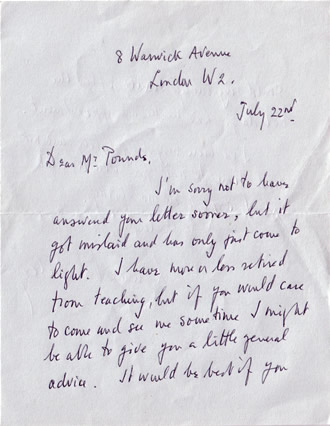 8 Warwick Avenue
London W2.
July 22nd.
Dear Mr Pounds,
I'm sorry not to have
answered your letter sooner, but it
got mislaid and has only just come to
light. I have more or less retired
from teaching, but if you would care
to come and see me some time I might
be able to give you a little general
advice. It would be best if you